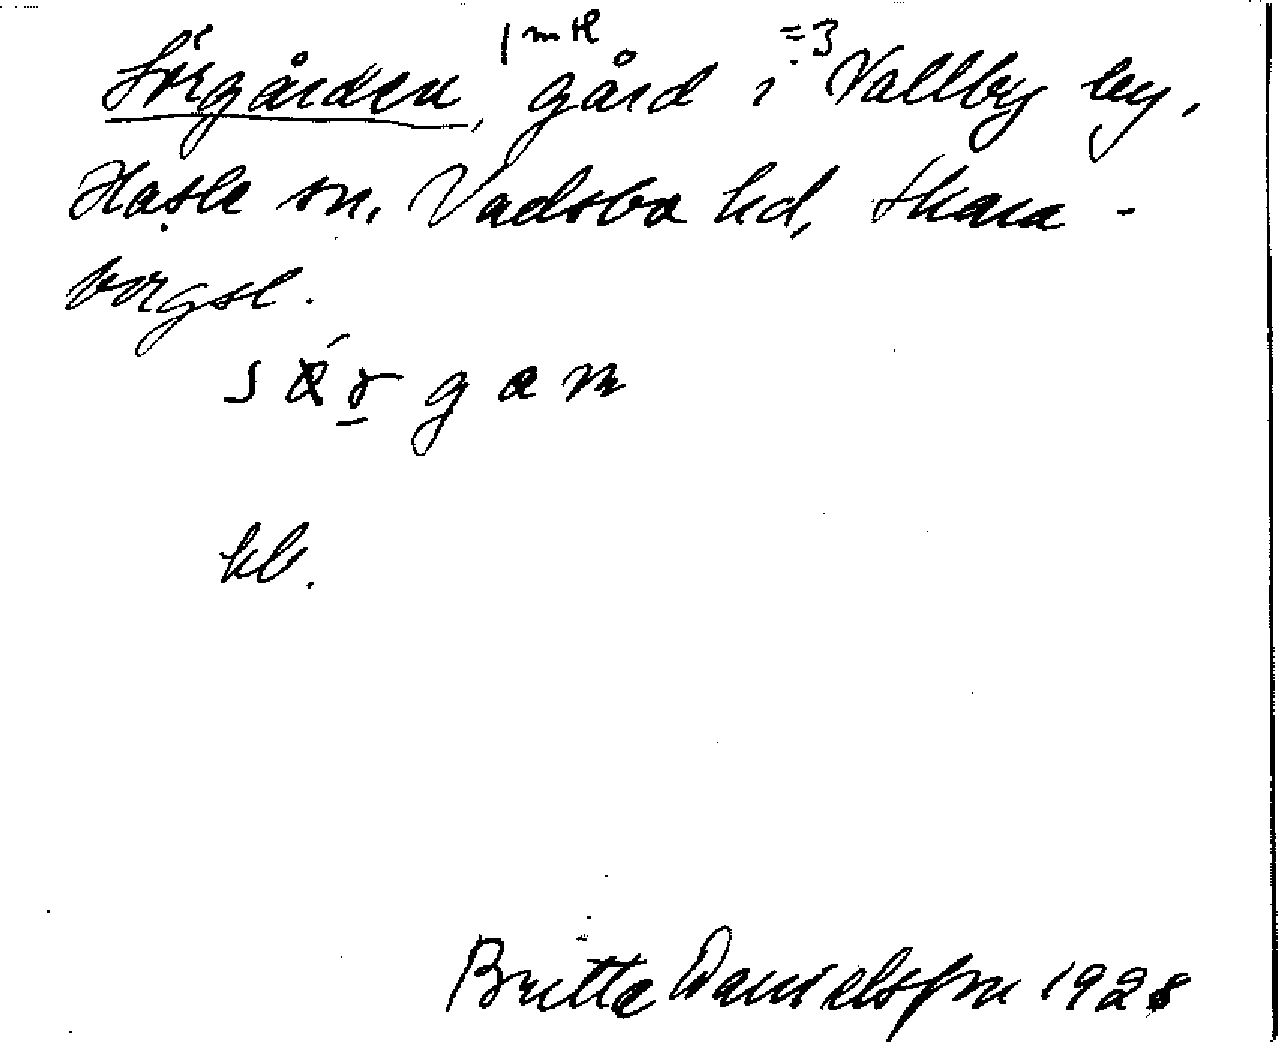 1 mtl =3
Sörgården, gård i Vallby by,
Hasle sn, Vadsbo hd, Skara-
borgsl.
sǿrgam
kb.
Britta Danielsson 1928